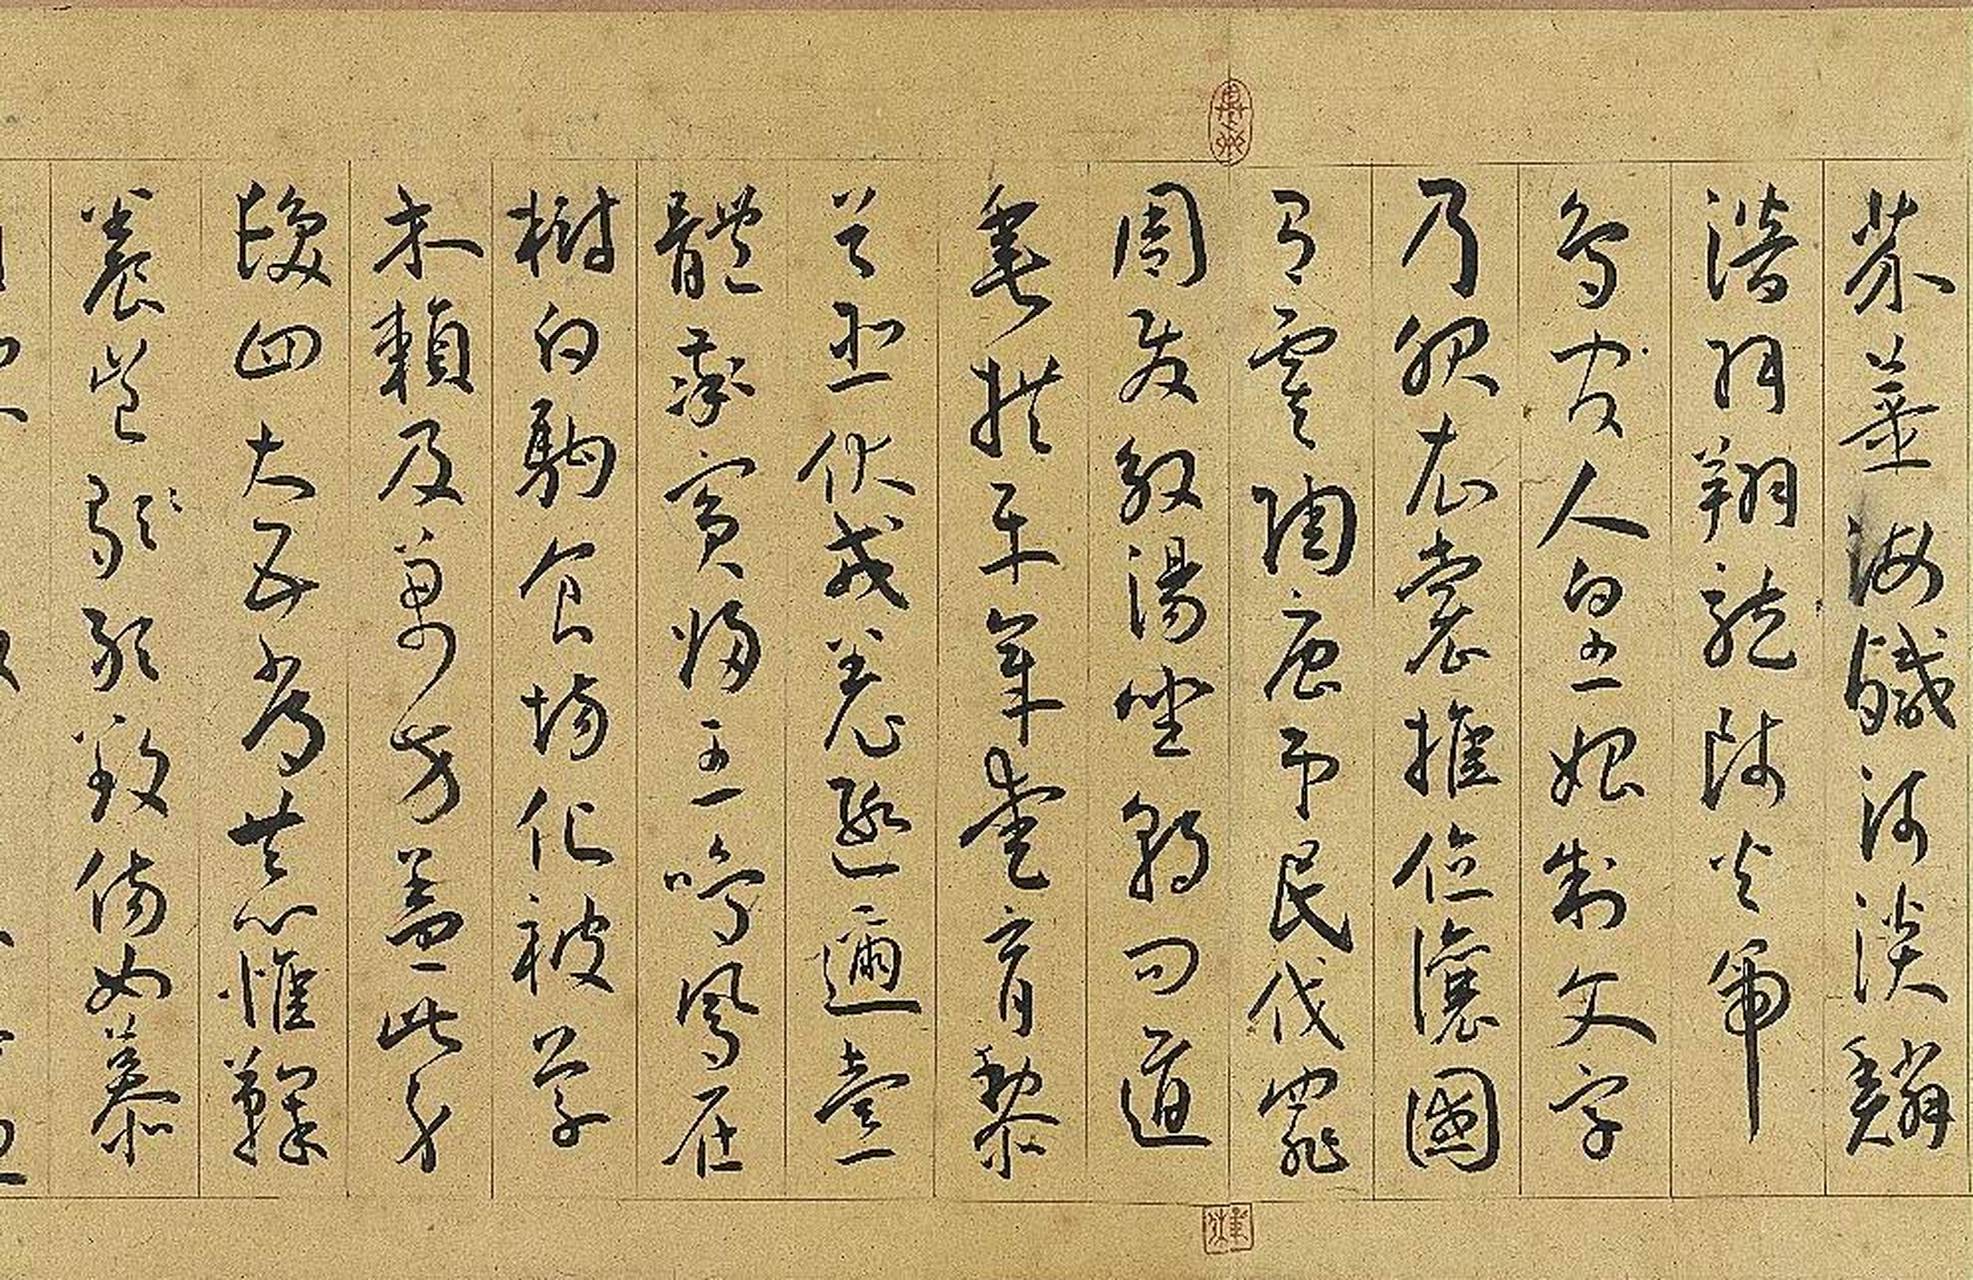 芥薑海鹹河淡鱗
潛羽翔龍師火帝
鳥官人皇始制文字
乃服衣裳推位讓國
有虞陶唐弔民伐罪
周發殷湯坐朝問道
垂拱平章愛育黎
首臣伏戎羌遐邇壹
體率賓歸王鳴鳳在
樹白駒食場化被草
木賴及萬方蓋此身
髮四大五常恭惟鞠
養豈敢毀傷女慕